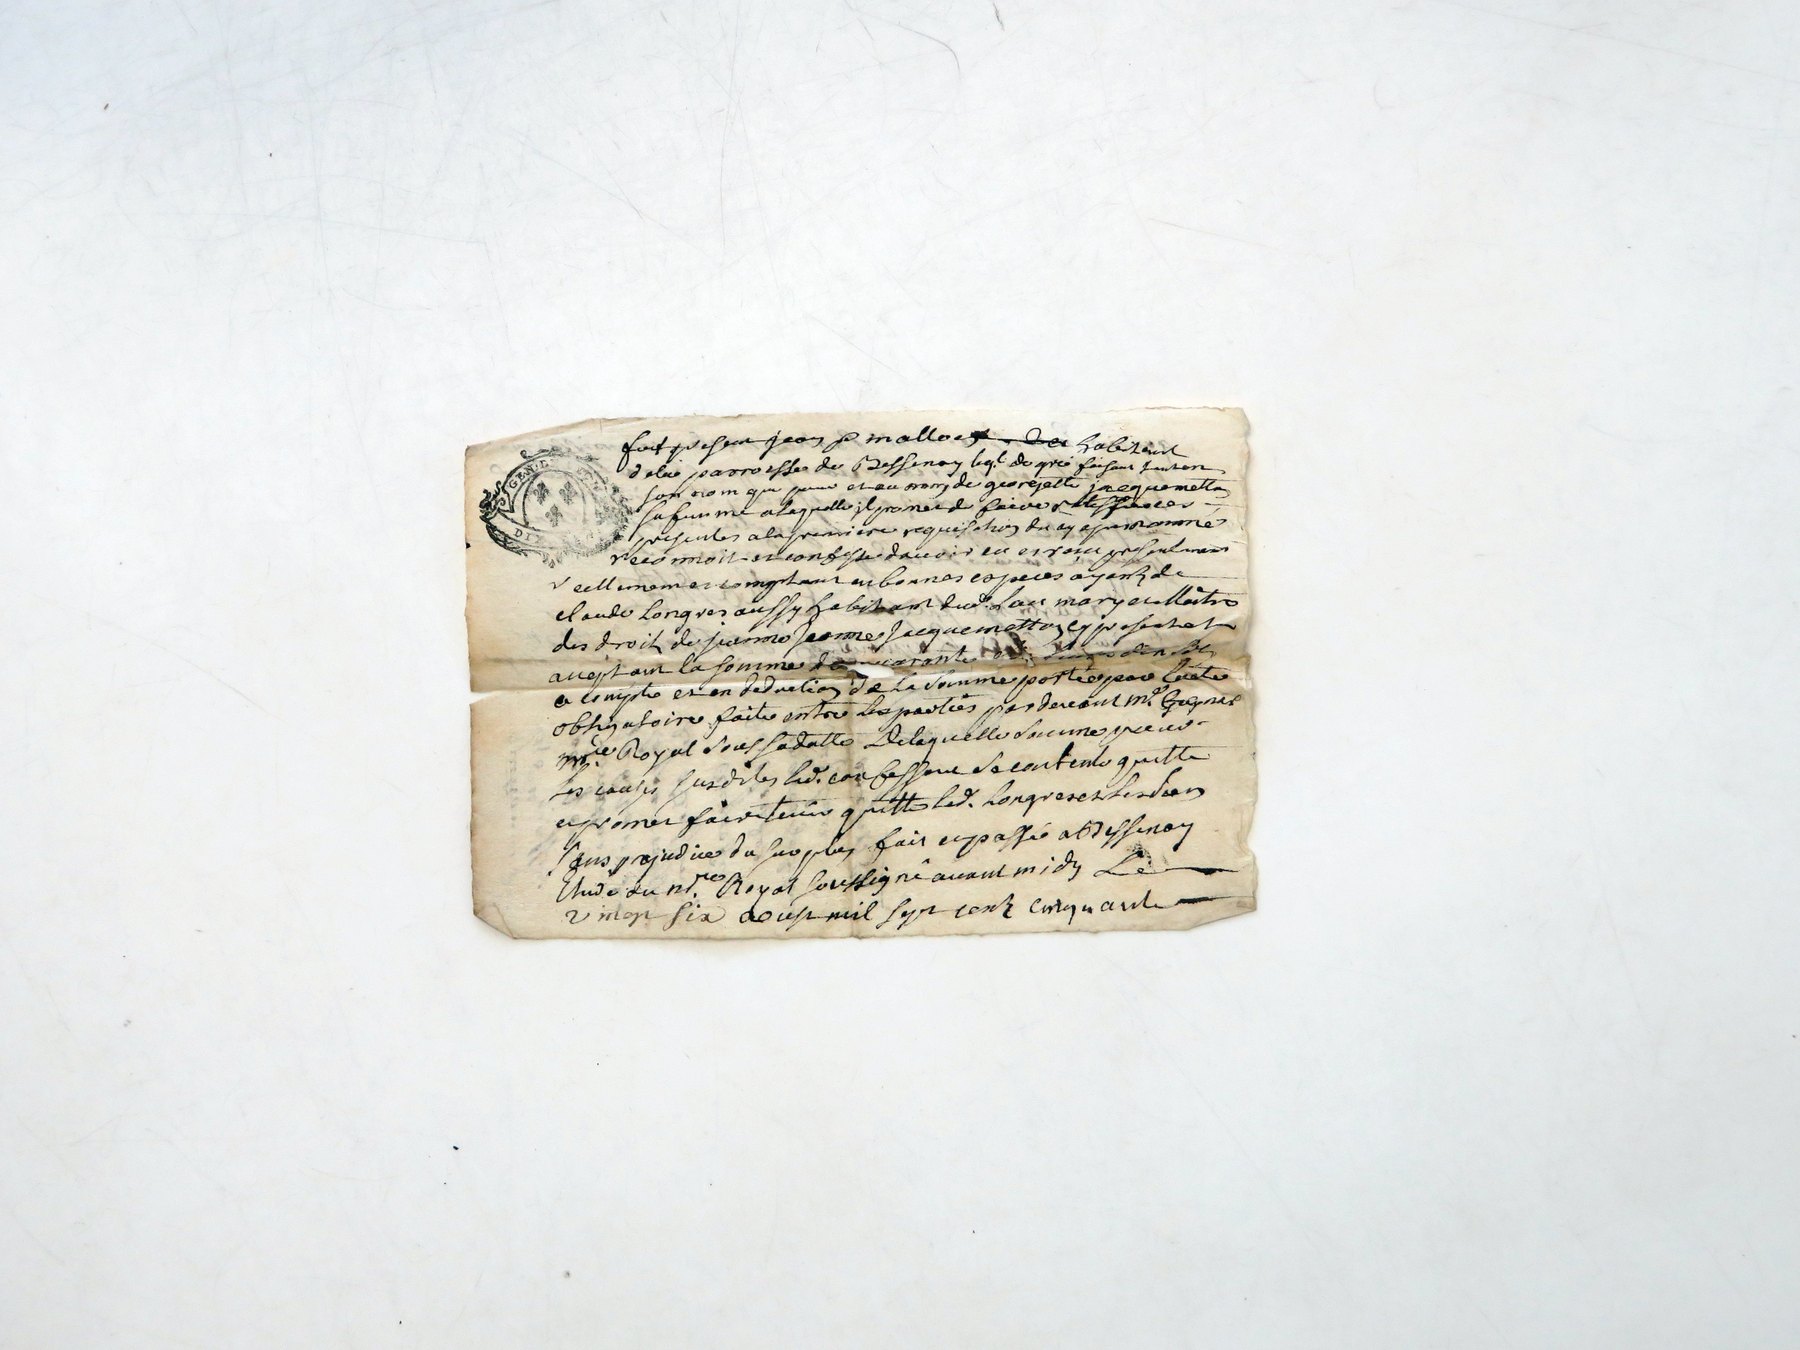 GEN. D
fut present jean p malloes habitant
de la parroesse de Bessenay leql. de gré faisant tant en
son nom que pour et au nom de georgette jacquemetton
sa femme a laquelle il promet de faire ratiffier ces
presentes a la premiere requisition du cy apres nommé
reconnoit et confesse davoir eu et reçu presentement
reellement et comptant en bonnes especes ayant de
claude Longres aussy habitant dud. Lieu mary et Maitre
des droit de jeanne jacquemetton cy present et
acceptant la somme de quarante
a compte et en deduction de la somme portée par lacte
obligatoire faite entre les parties par devant me.
nre. Royal sous sa datte De laquelle somme pour
les causes susdites led. confessant se contente quitte
et promet faire tenir quitte led. Longres et les siens
sans prejudice du surplus fait et passé a Bessenay
Etude du nre. Royal soussigné avant midy Le
vingt six aoust mil sept cent cinquante